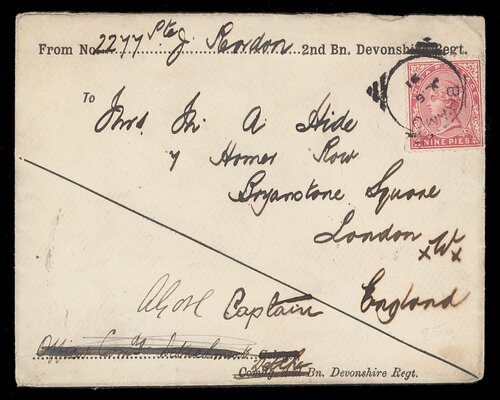 From No. 2277 Pte J Reardon 2nd Bn. Devonshire Regt.
To
Mrs M A Hide
7 Homer Row
Bryanstone Square
London
xWx
England
NINE PIES
Captain
Comdg. 2nd Bn. Devonshire Regt.